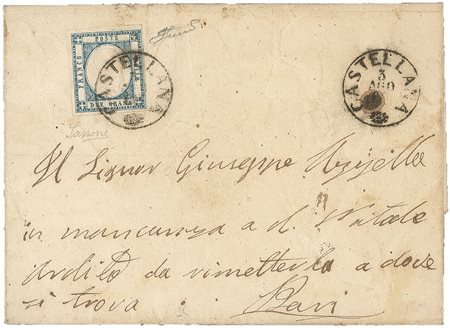 FRANCO
POSTE
BOLLO
DUE GRANA
CASTELLANA
CASTELLANA
3
AGO
Sassone
Al Signor Giuseppe
in mancanza a d. Natale
Ardito da rimetterla a dove
si trova Bari